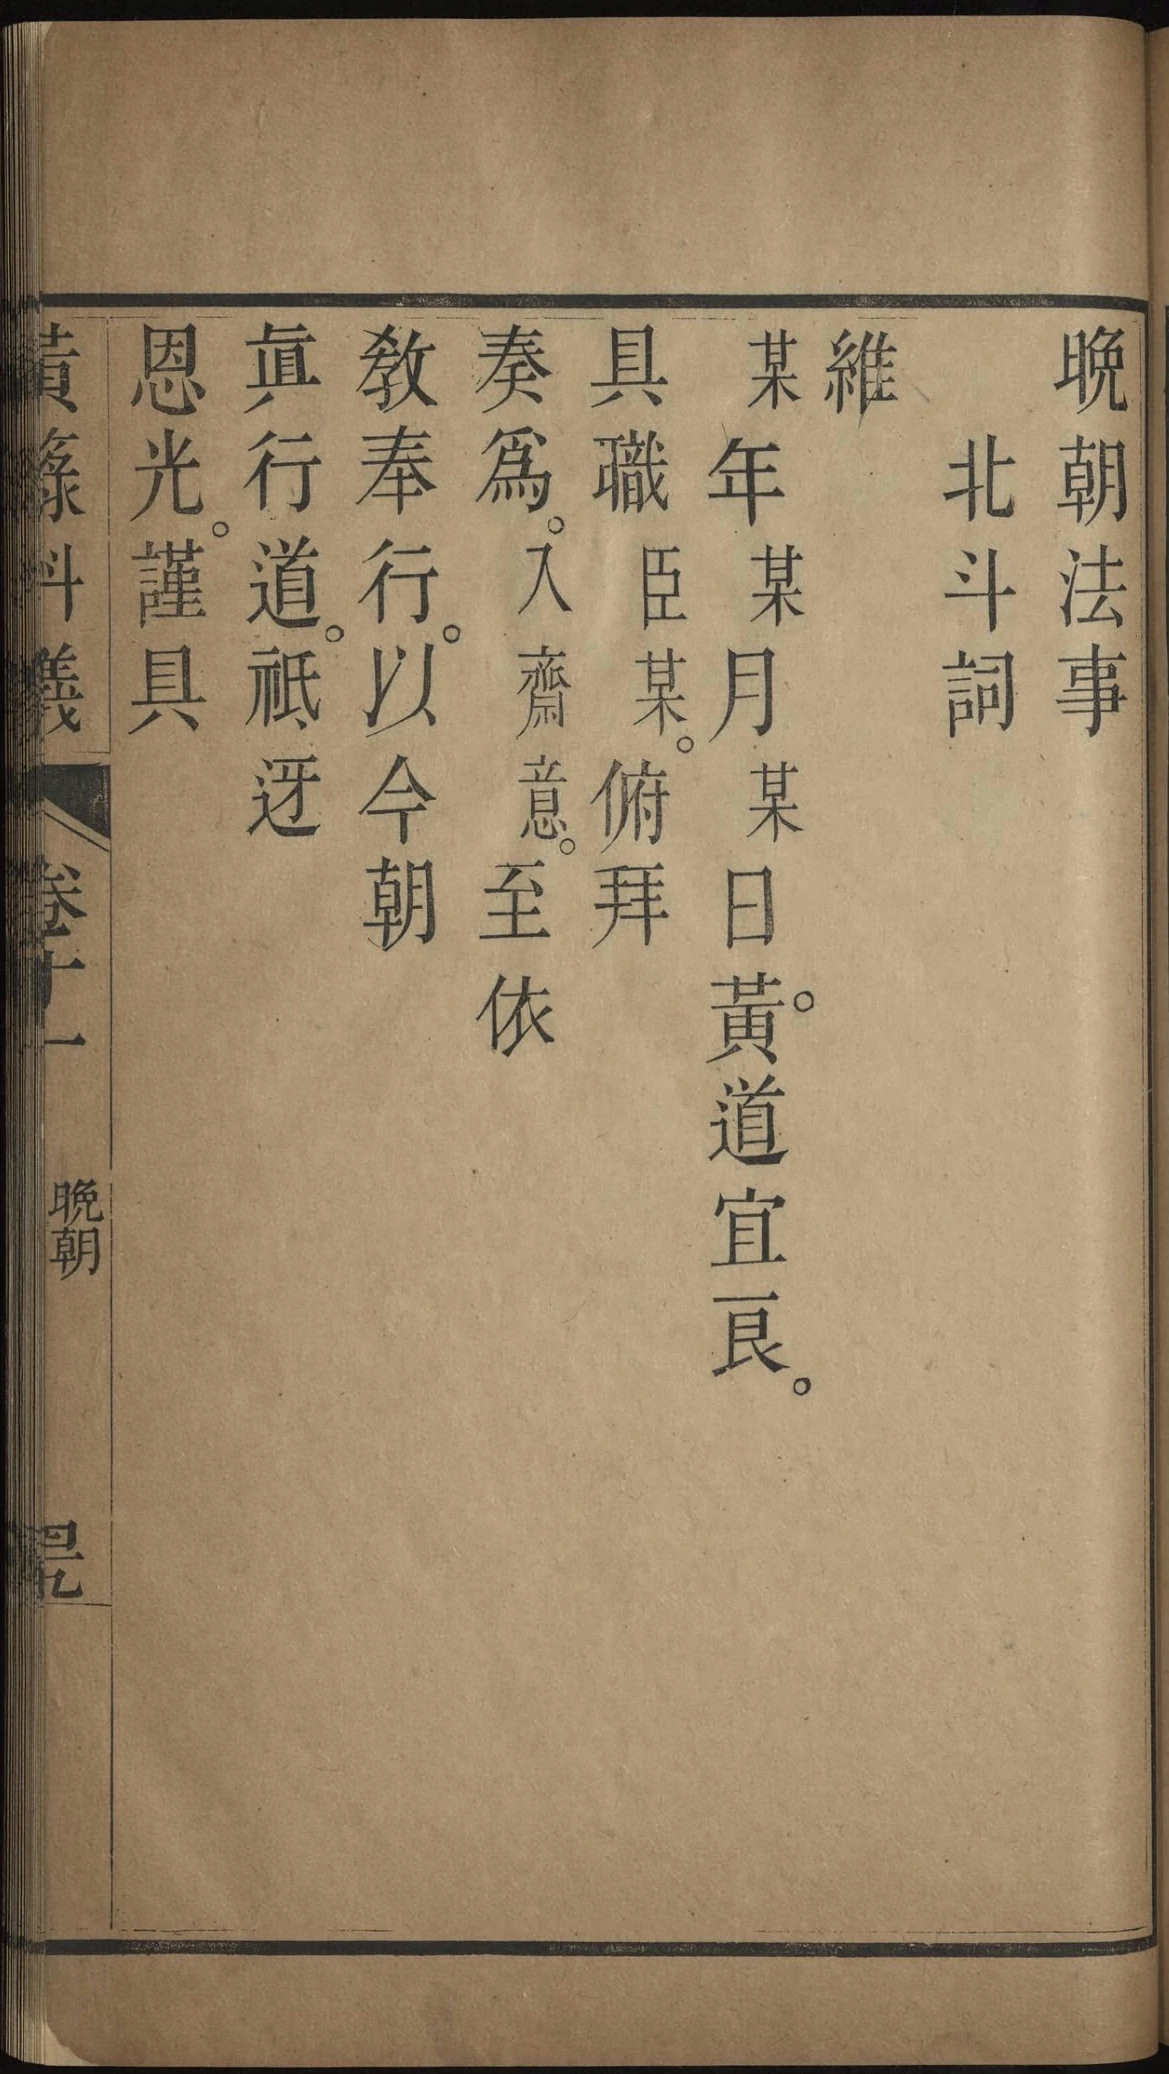 晩朝法事
北斗詞
維
某年某月某日。黃道宜良。
具職臣某。俯拜
奏爲。入齋意。至依
敎奉行。以今朝
眞行道。祇迓
恩光。謹具
黃籙科儀
卷十一
晩朝